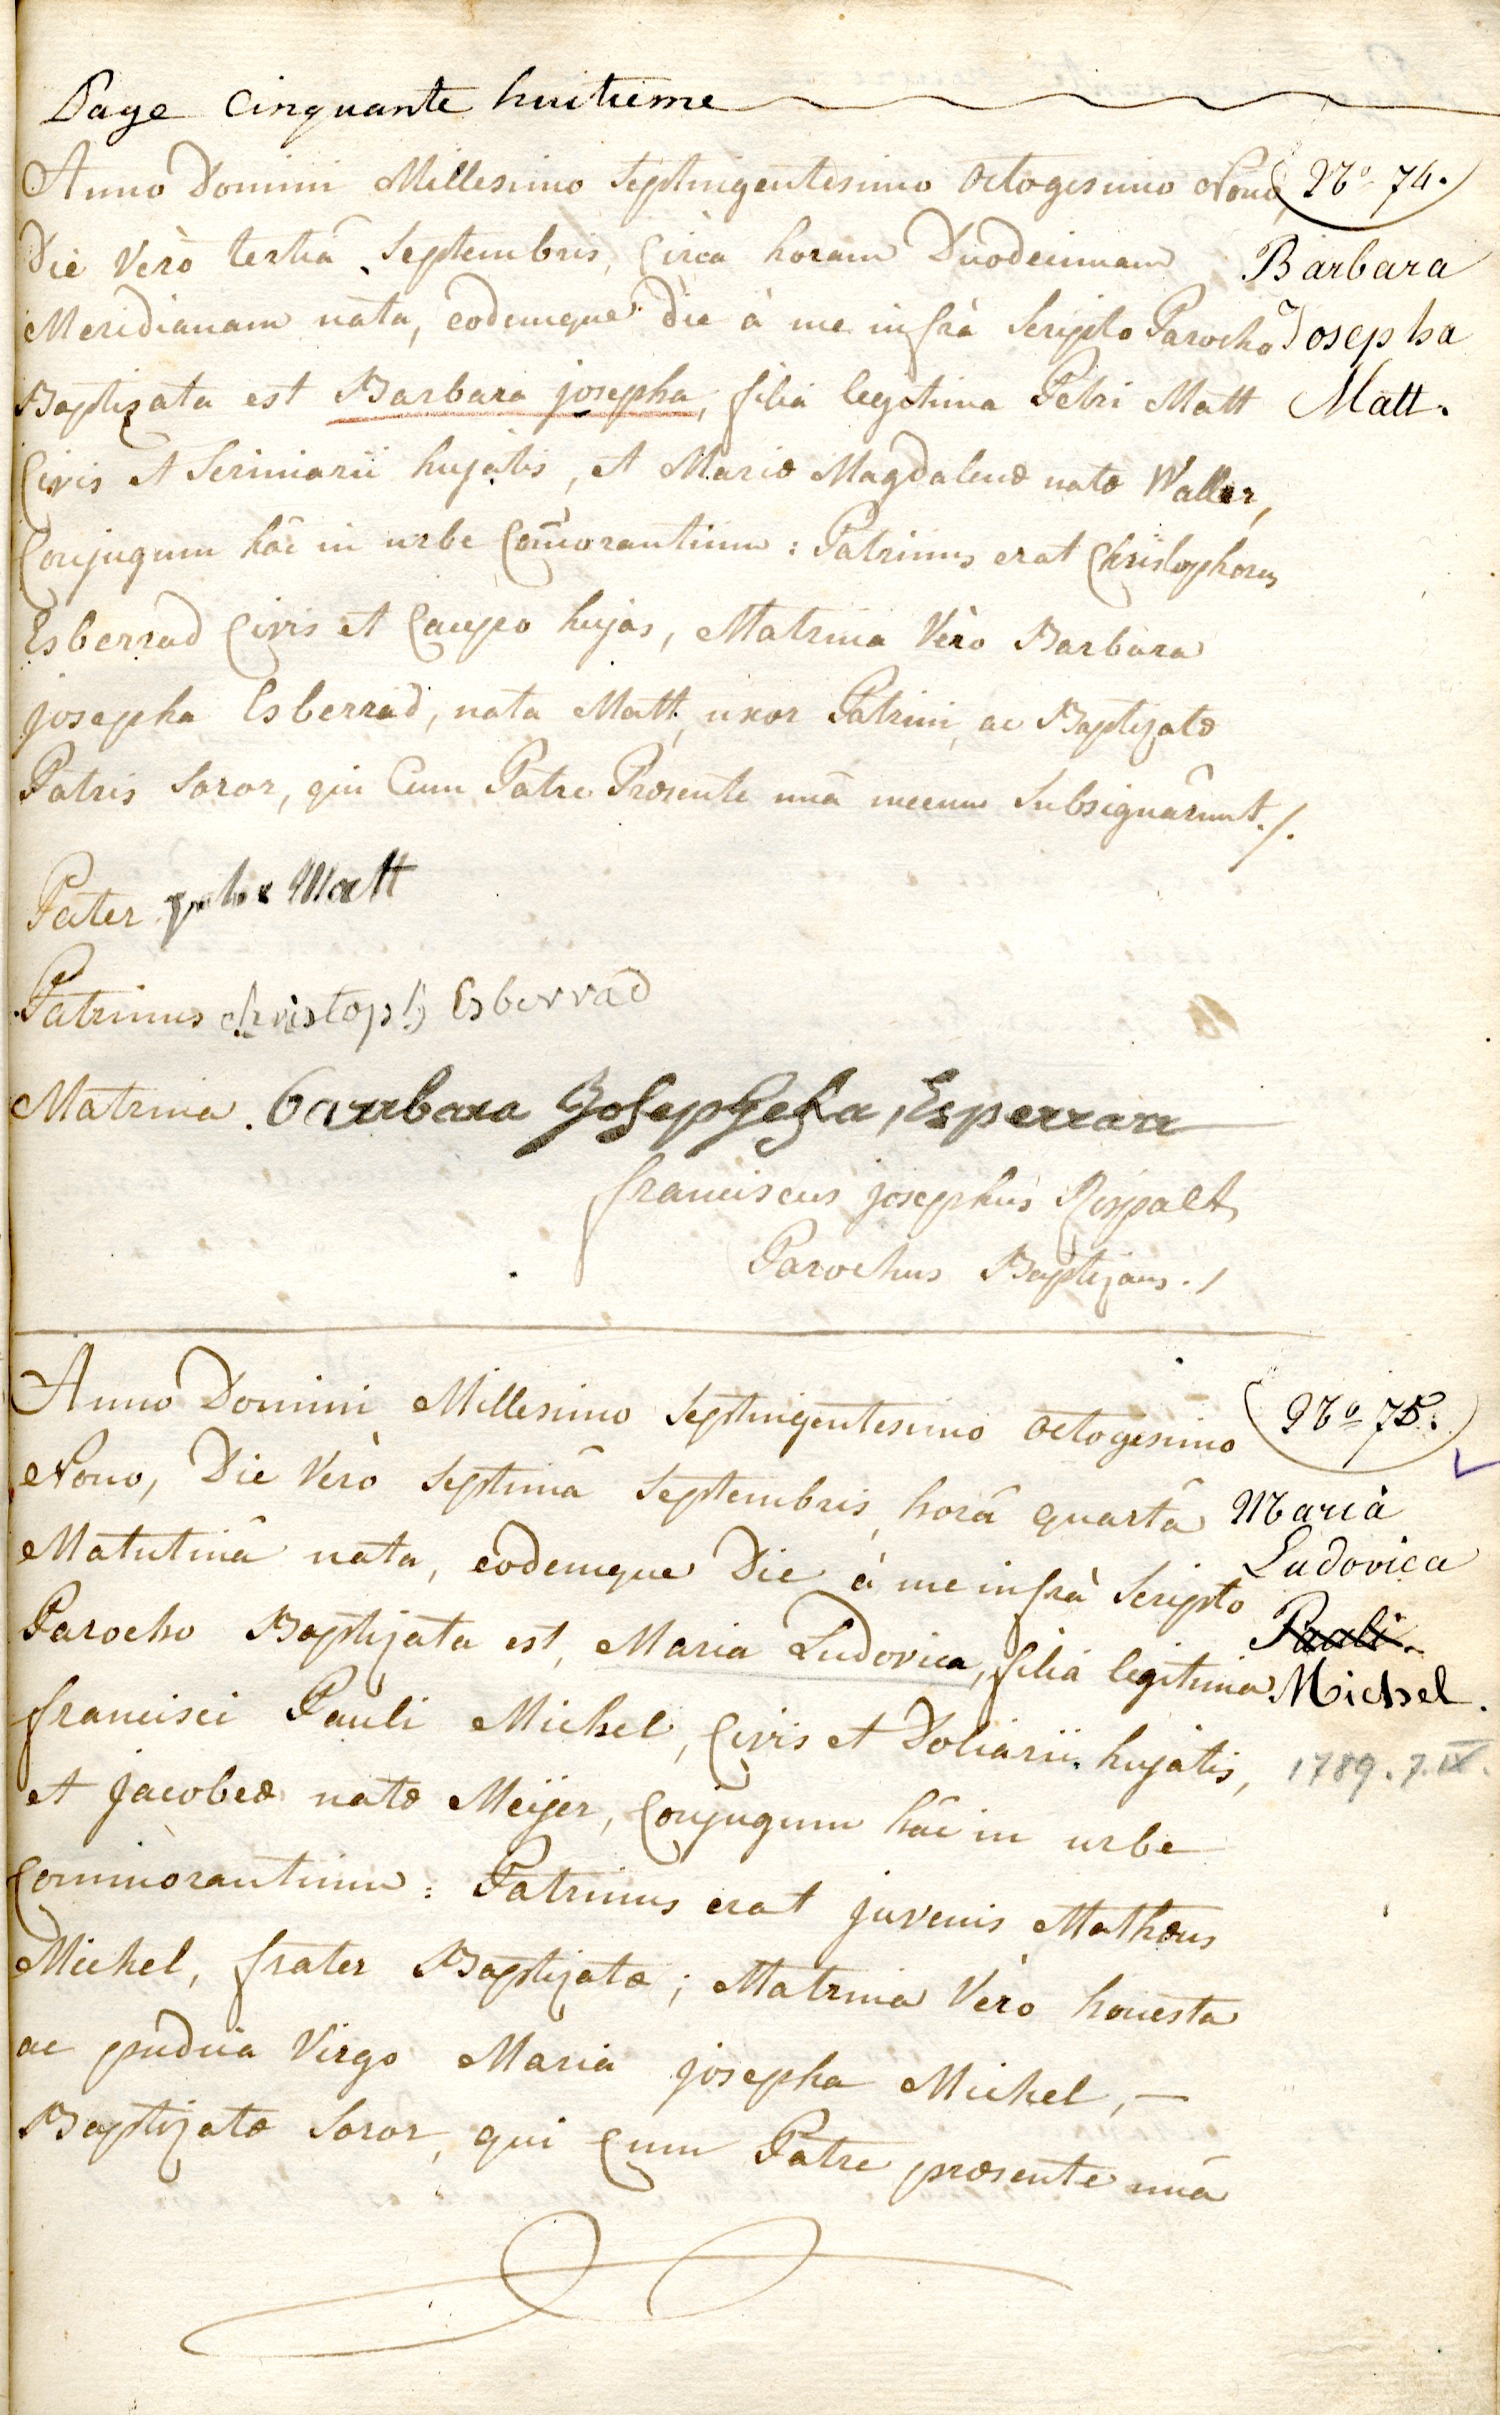 Page Cinquante huitieme
Anno Domini Millesimo Septingentesimo Octogesimo Nono, Nº 74.
Die Verò tertiâ Septembris, Circa horam Duodecimam Barbara
Meridianam nata, eodemque die à me infrà Scripto Parocho Josepha
Baptizata est Barbara josepha, filia legitima Petri Matt Matt.
Civis et Scriniarii hujatis, et Mariæ Magdalenæ natæ Waller,
Conjugum hâc in urbe Com̃orantium : Patrinus erat Christophorus
Esberrad Civis et Caupo hujas, Matrina Vèro Barbara
josepha Esberrad, nata Matt, uxor Patrini, ac Baptizatæ
Patris Soror, qui Cum Patre Præsente unâ mecum Subsignârunt./.
Pater peter Matt
Patrinus christoph Esberrad
Matrina Barbara Josepheha, Esperrara
franciscus josephus Rispalt
Parochus Baptizans ./
Anno Domini Millesimo Septingentesimo Octogesimo Nº 75.
Nono, Die Verò Septimâ Septembris, horâ quartâ Maria
Matutinâ nata, eodemque Die à me infrà Scripto Ludovica
Parocho Baptizata est, Maria Ludovica, filia legitima Pauli.
francisci Pauli Michel, Civis et Doliarii hujatis, Michel.
1789. 7. IX.
et jacobeæ natæ Meÿer, Conjugum hâc in urbe
Commorantium : Patrinus erat juvenis Mathæus
Michel, frater Baptizatæ ; Matrina Vèro honesta
ac pudica Virgo Maria josepha Michel, —
Baptizatæ Soror, qui Cum Patre præsente unâ